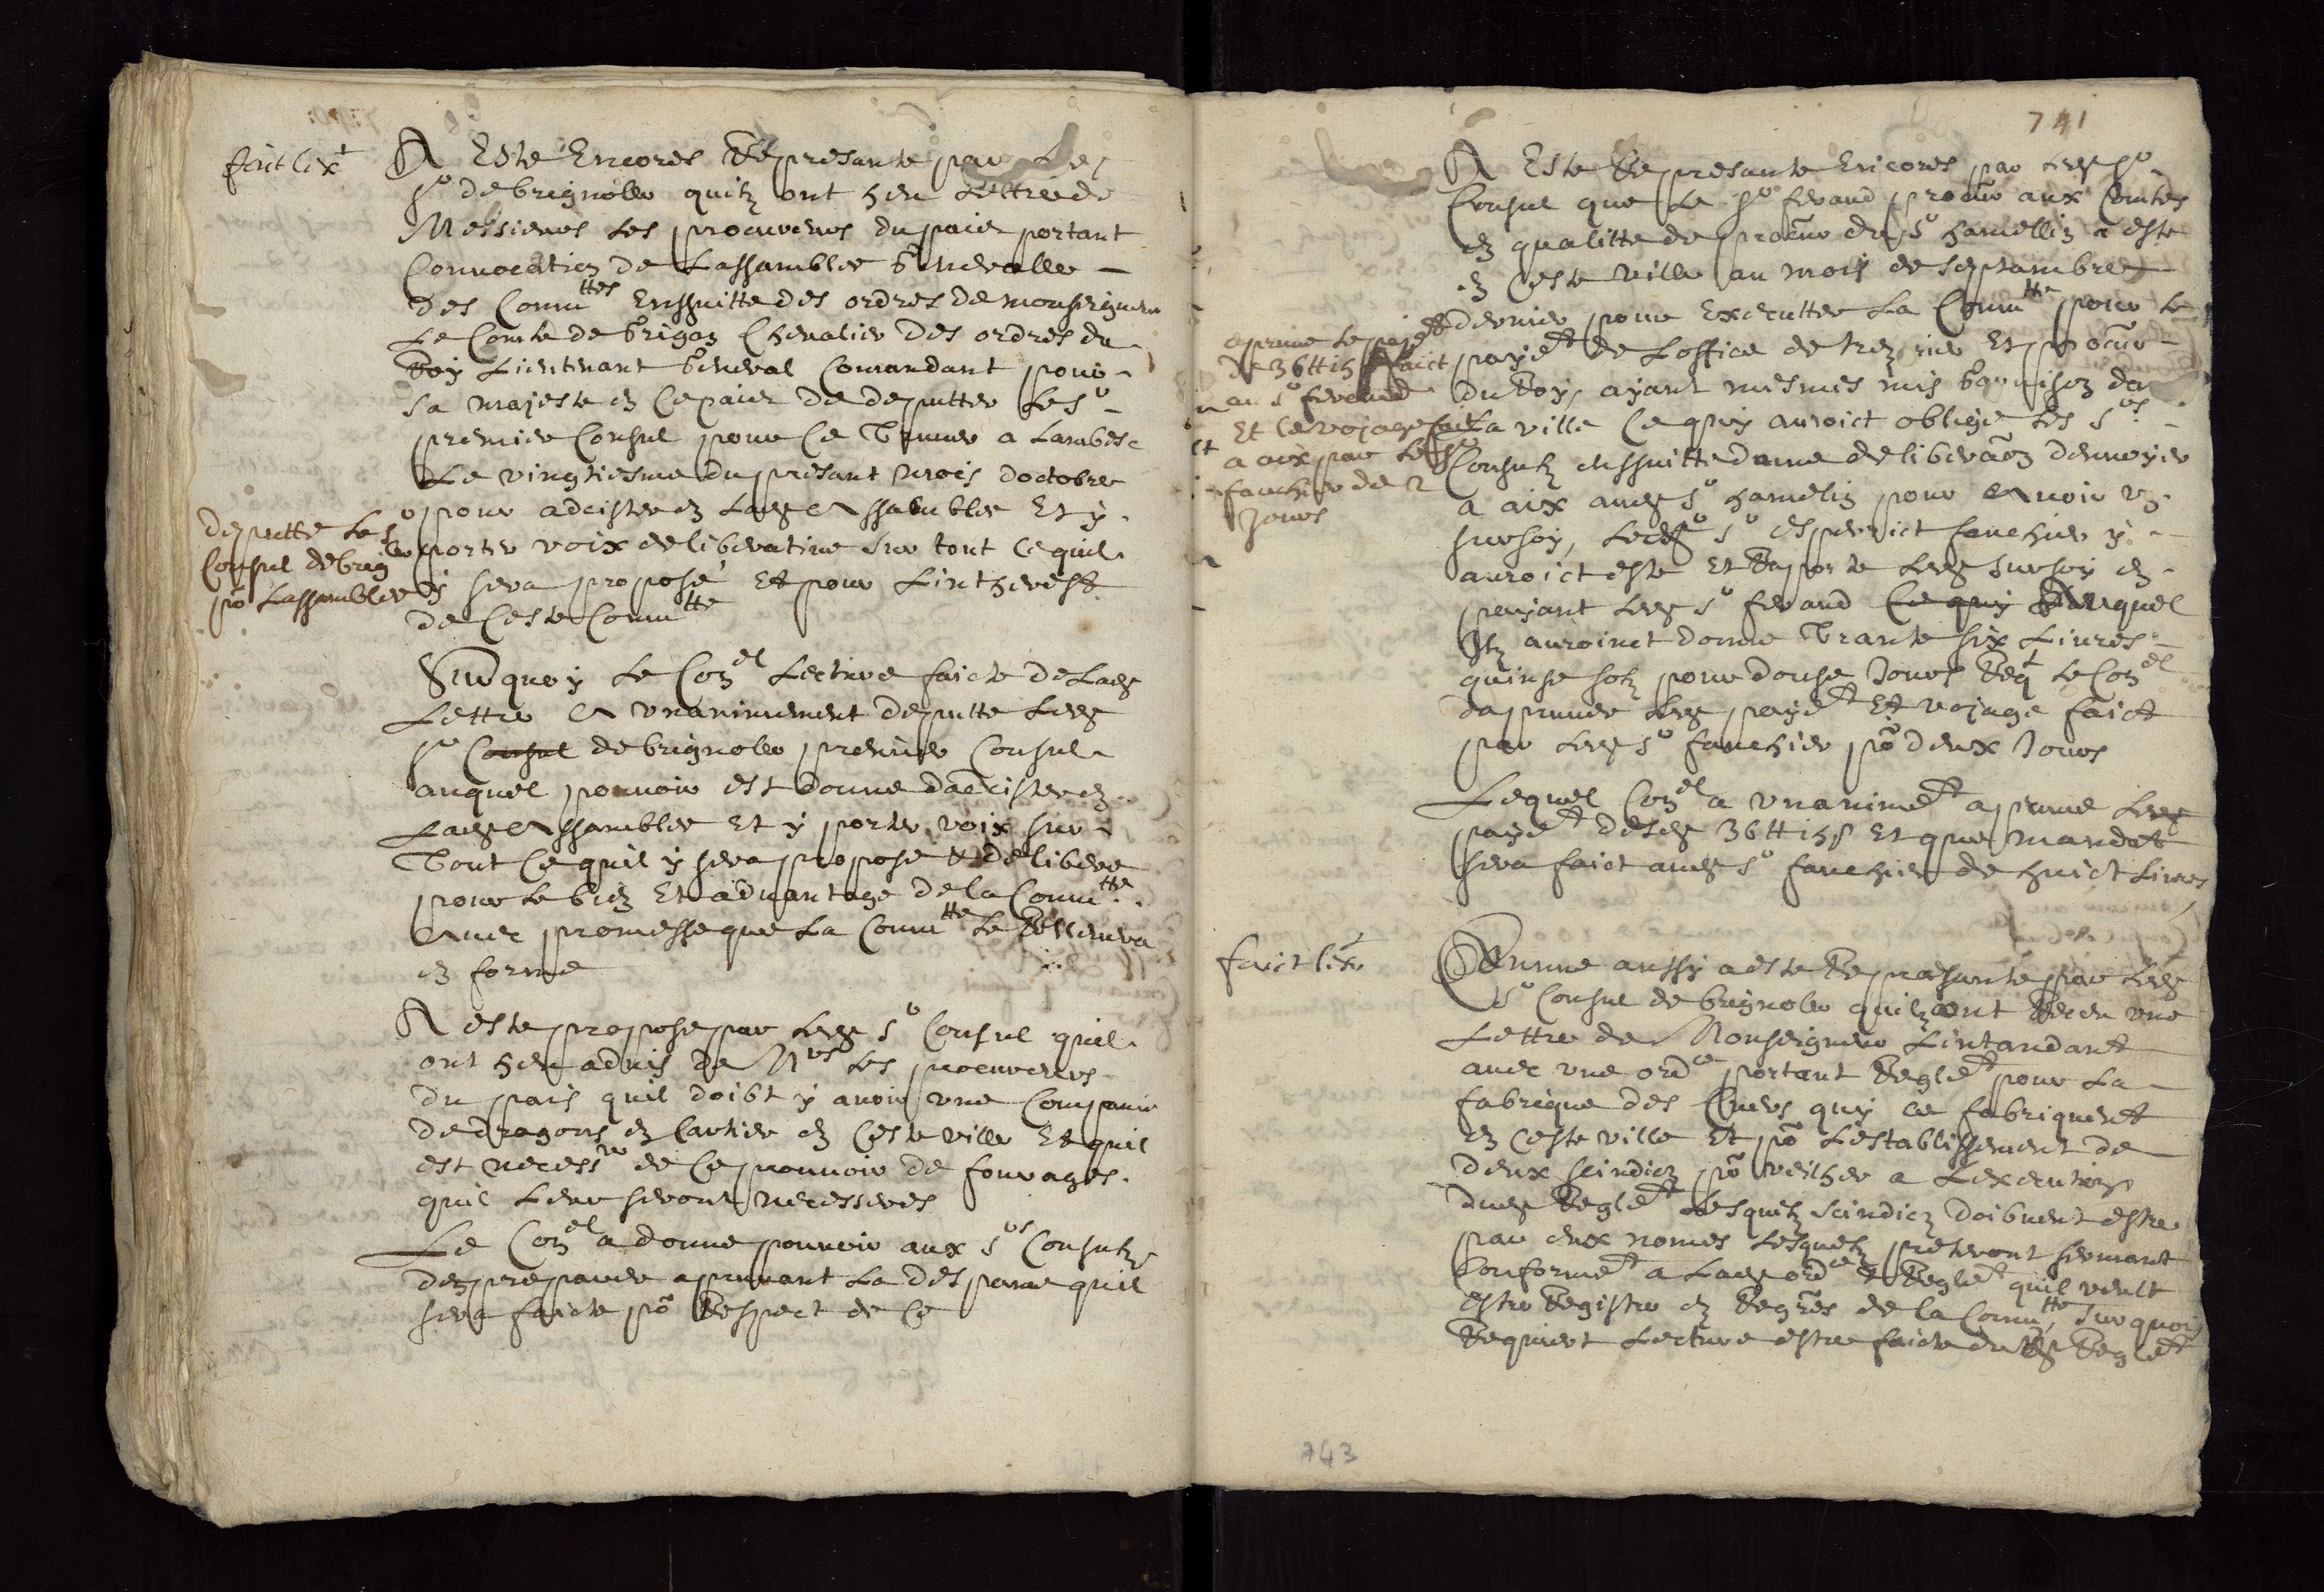 fait lext
A Este Encores Represante par Les
sr de brignolle quilz ont heu Lettre de
Messieurs Les procureurs du pais portant
Convocation de Lassamblee Generalle
des Commttes Enssuitte des ordres de monseigneur
Le Comte de Grignan Chevalier des ordres du
Roy Lieutenant General Comandant pour
sa majeste en Ce pais de deputter Le sr
premier Consul pour Ce Trouver a Lambesc
Le vingtiesme du presant mois doctobre
pour adcister en Lade Assamblee Et y
porter voix deliberative sur tout Ce quil
y sera propose Et pour Lintherest
de Ceste Commtte
deputte Le sr
Consul de brignolle
po Lassamblee
Sur quoy Le Conel Lecture faicte de Lade
Lettre A unanimement deputte Led
sr Consul de brignolle premier Consul
auquel pouvoir est donne dadcister en
Lade Assamblee Et y porter voix sur
Tout Ce quil y sera propose et delibere
pour Le bien Et advantage de la Commtte
Avec promesse que La Commtte Le Rellevera
en forme
A este propose par Led sr Consul quil
ont heu advis de Mrs Les procureurs
du pais quil doibt y avoir une Companie
de dragons en Cartier en Ceste ville Et quil
est necessre de Ce pourvoir de fourages
quil Leur seront necesseres
Le Conel a donne pouvoir aux srs Consulz
den preparer aprouvant La despance quil
sera faicte po Respect de Ce
741
A Este Represante Encores par Led sr
Consul que Le sr feraud procur aux Comtes
en qualitte de procur de sr hamellin a este
en Ceste ville au mois de septambre
dernier pour Executter La Commtte pour Le
payet de Loffice de trezorier Et procur
du Roy, ayant mesmes mis Garnison da
La ville Ce quy auroict oblige Les srs
Consulz enssuitte dune deliberaon denvoyer
a aix aud sr hamelin pour Avoir un
sursoy, Led sr esperict fauchier y
auroict este Et Raporte Led sursoy en
payant Led sr feraud Ce quy Auquel
Ilz auroinct donne Trante six Livres
quinse solz pour douse Jours Reqt Le Conel
daprouver Led payet Et vojage faict
par Led sr fauchier po deux Jours
aprouve Le payet
de 36 tt 15 s faict
au sr feraud
Et Le vojage fait
a aix par Le sr
fauchier de 2
Jours
Lequel Conel a unanimet aprouve Led
payet desd 36 tt 15 s Et que mandat
sera faict aud sr fauchier de huict Livres
faict lext
Comme aussy a este Represante par Led
sr Consul de brignolle quilz ont Receu une
Lettre de Monseigneur Lintandant
avec une ordce portant Reglet pour La
fabrique des Cuers quy ce fabriquent
en Ceste ville Et po Lestablissement de
deux scindicz po veilher a Lexecution
dud Reglet Lesquelz scindicz doibvent estre
par eux nomes Lesquelz preteront sermant
Conformet a Lade ordce et Reglet quil veult
estre Registre en Regres de la Commtte, Sur quoy
Requiert Lecture estre faicte dud Reglet
743